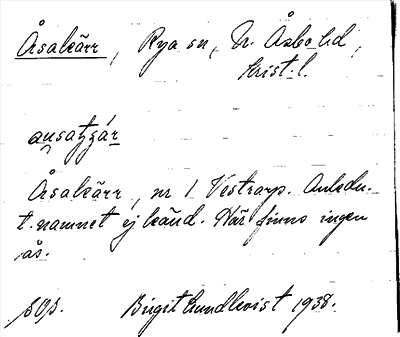 Åsakärr, Rya sn, N. Åsbo hd,
Krist. l.
ausatzgár
Åsakärr, nr 1 Vestrarp. Anledn.
t. namnet ej känd. Här finns ingen
ås.
Birgit Lundkvist 1938.